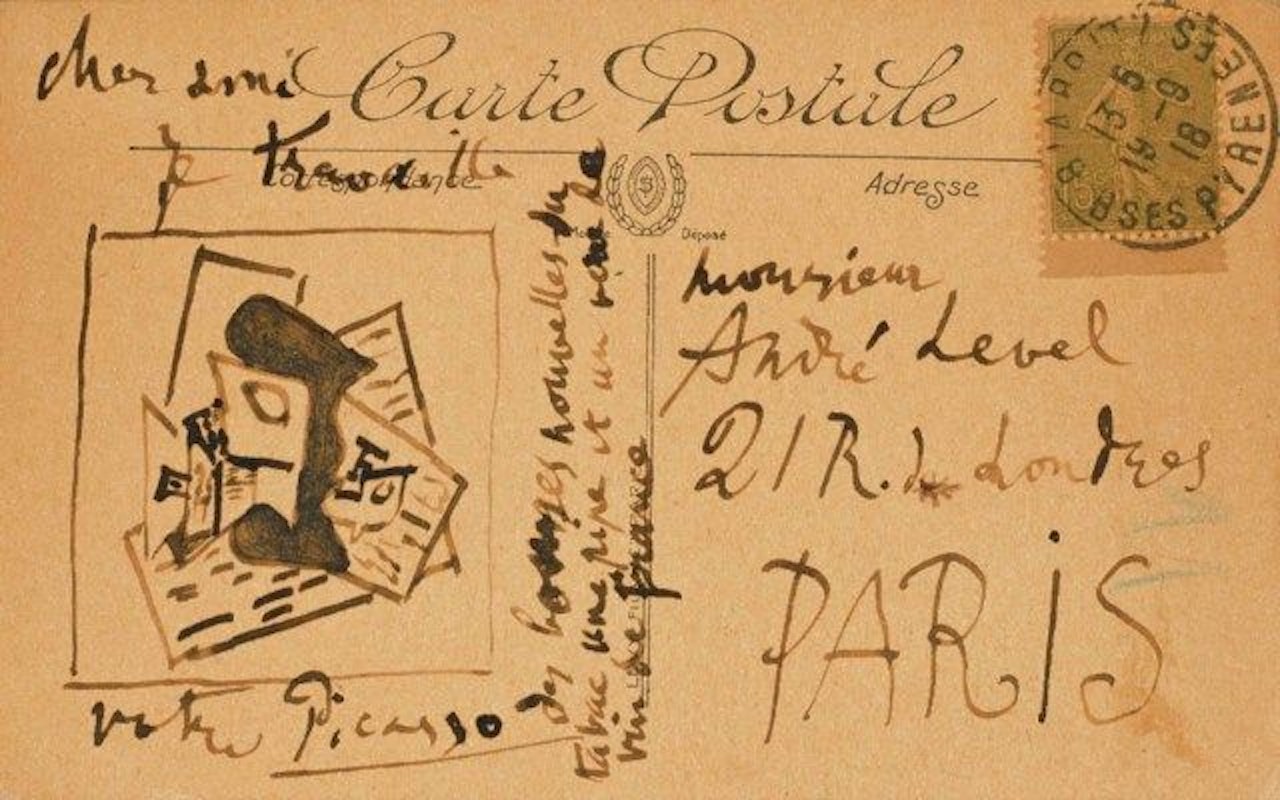 Cher ami
Carte Postale
je travaille
Correspondance
Adresse
Modèle Déposé
votre Picasso
des bonnes nouvelles du
tabac une pipe et un verre de
vin de france
monsieur
André Level
21 R. de Londres
PARIS
BSES PYRENEES
13 5
19 -9
18